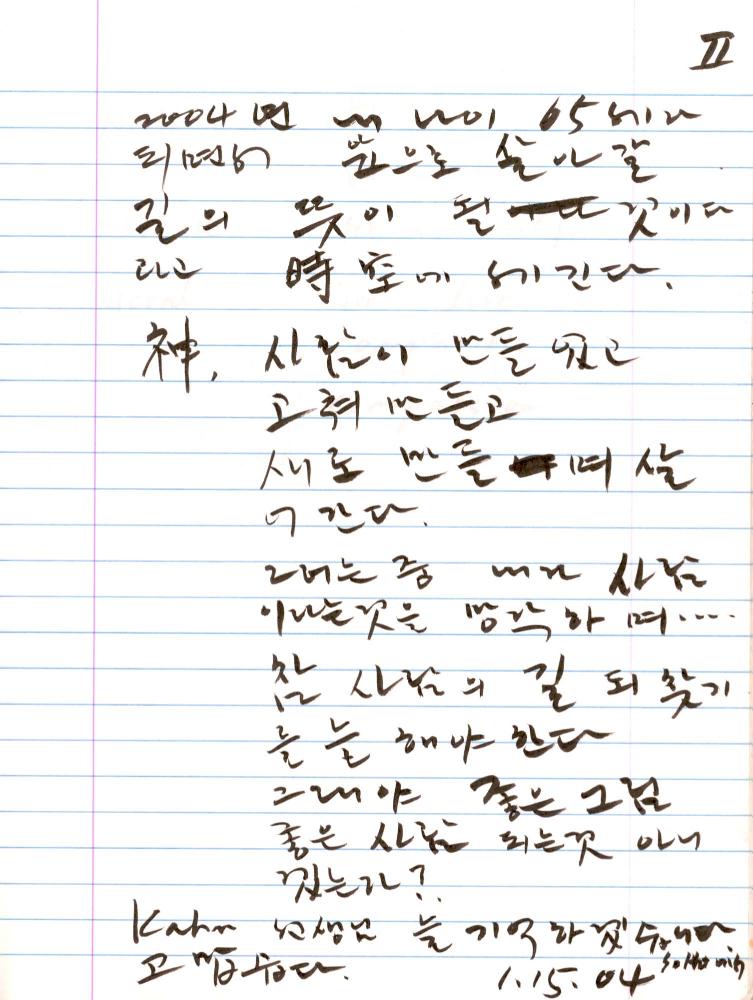 II
2004년 내 나이 65세가
되면서 앞으로 살아갈
길의 뜻이 될 것이다
라고 時空에 새긴다.
神, 사람이 만들었고
고쳐 만들고
새로 만들며 살
어 간다.
그러는 중 내가 사람
이라는것을 망각하며.....
참 사람의 길 되찾기
를 늘 해야 한다
그래야 좋은 그림
좋은 사람 되는것 아니
겠는가?
Kahn 선생님 늘 기억하겠습니다
고맙습니다.
1.15.04